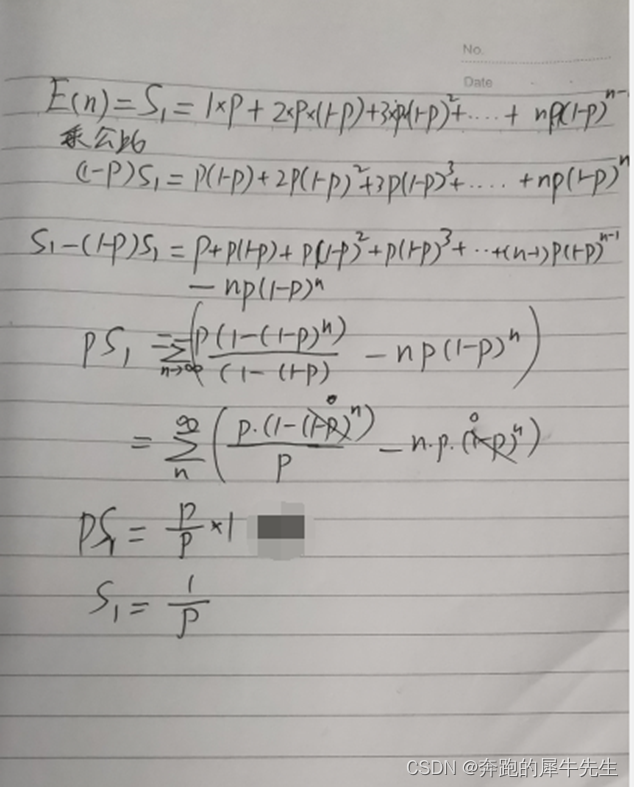 No.
Date
E(n) = S₁ = 1×p + 2×p×(1-p)+3×p(1-p)²+.....+ np(1-p)ⁿ⁻
乘公比
(1-p)S₁ = p(1-p)+2p(1-p)²+3p(1-p)³+.....+np(1-p)ⁿ
S₁-(1-p)S₁ = p+p(1-p)+p(1-p)²+p(1-p)³+...+(n-1)p(1-p)ⁿ⁻¹
- np(1-p)ⁿ
pS₁ = ∑ n→∞ (p(1-(1-p)ⁿ) / (1-(1-p)) - np(1-p)ⁿ)
= ∑ n ∞ (p·(1-(1-p)ⁿ) / p - n·p·(1-p)ⁿ) 0 0
pS₁ = p/p ×1
S₁ = 1/p
CSDN @奔跑的犀牛先生